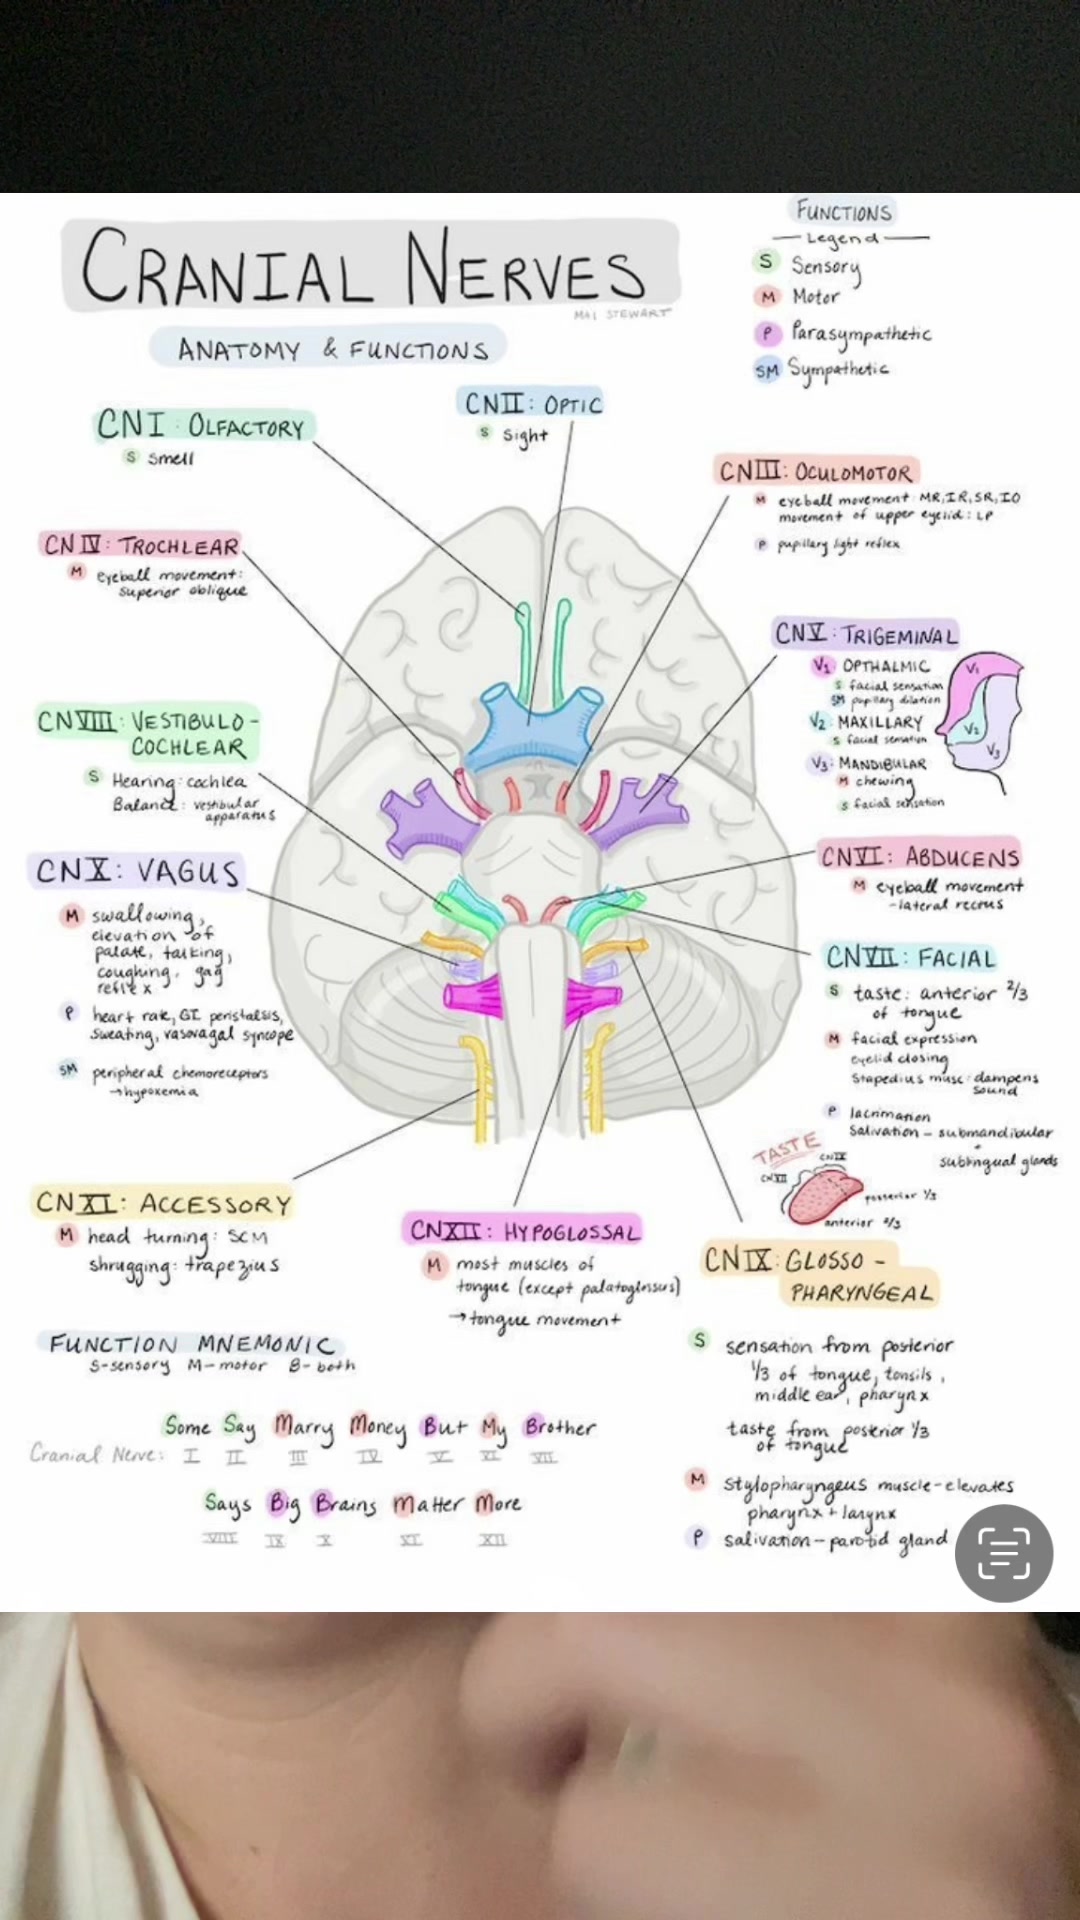 CRANIAL NERVES
MAI STEWART
ANATOMY & FUNCTIONS
FUNCTIONS
Legend
S Sensory
M Motor
P Parasympathetic
SM Sympathetic
CN I: OLFACTORY
S smell
CN II: OPTIC
S sight
CN III: OCULOMOTOR
M eyeball movement: MR, IR, SR, IO
movement of upper eyelid: LP
P pupillary light reflex
CN IV: TROCHLEAR
M eyeball movement:
superior oblique
CN V: TRIGEMINAL
V1 OPTHALMIC
S facial sensation
SM pupillary dilation
V2: MAXILLARY
S facial sensation
V3: MANDIBULAR
M chewing
S facial sensation
V1
V2
V3
CN VIII: VESTIBULO-
COCHLEAR
S Hearing: cochlea
Balance: vestibular
apparatus
CN VI: ABDUCENS
M eyeball movement
-lateral rectus
CN X: VAGUS
M swallowing,
elevation of
palate, talking,
coughing, gag
reflex
P heart rate, GI peristalsis,
sweating, vasovagal syncope
SM peripheral chemoreceptors
→hypoxemia
CN VII: FACIAL
S taste: anterior 2/3
of tongue
M facial expression
eyelid closing
Stapedius musc: dampens
sound
P lacrimation
Salivation - submandibular
+
sublingual glands
TASTE
CN IX
CN VII
posterior 1/3
anterior 2/3
CN XI: ACCESSORY
M head turning: SCM
shrugging: trapezius
CN XII: HYPOGLOSSAL
M most muscles of
tongue (except palatoglossus)
→tongue movement
CN IX: GLOSSO-
PHARYNGEAL
S sensation from posterior
1/3 of tongue, tonsils,
middle ear, pharynx
taste from posterior 1/3
of tongue
M stylopharyngeus muscle-elevates
pharynx + larynx
P salivation-parotid gland
FUNCTION MNEMONIC
S-sensory M-motor B-both
Some Say Marry Money But My Brother
Cranial Nerve: I II III IV V VI VII
Says Big Brains Matter More
VIII IX X XI XII